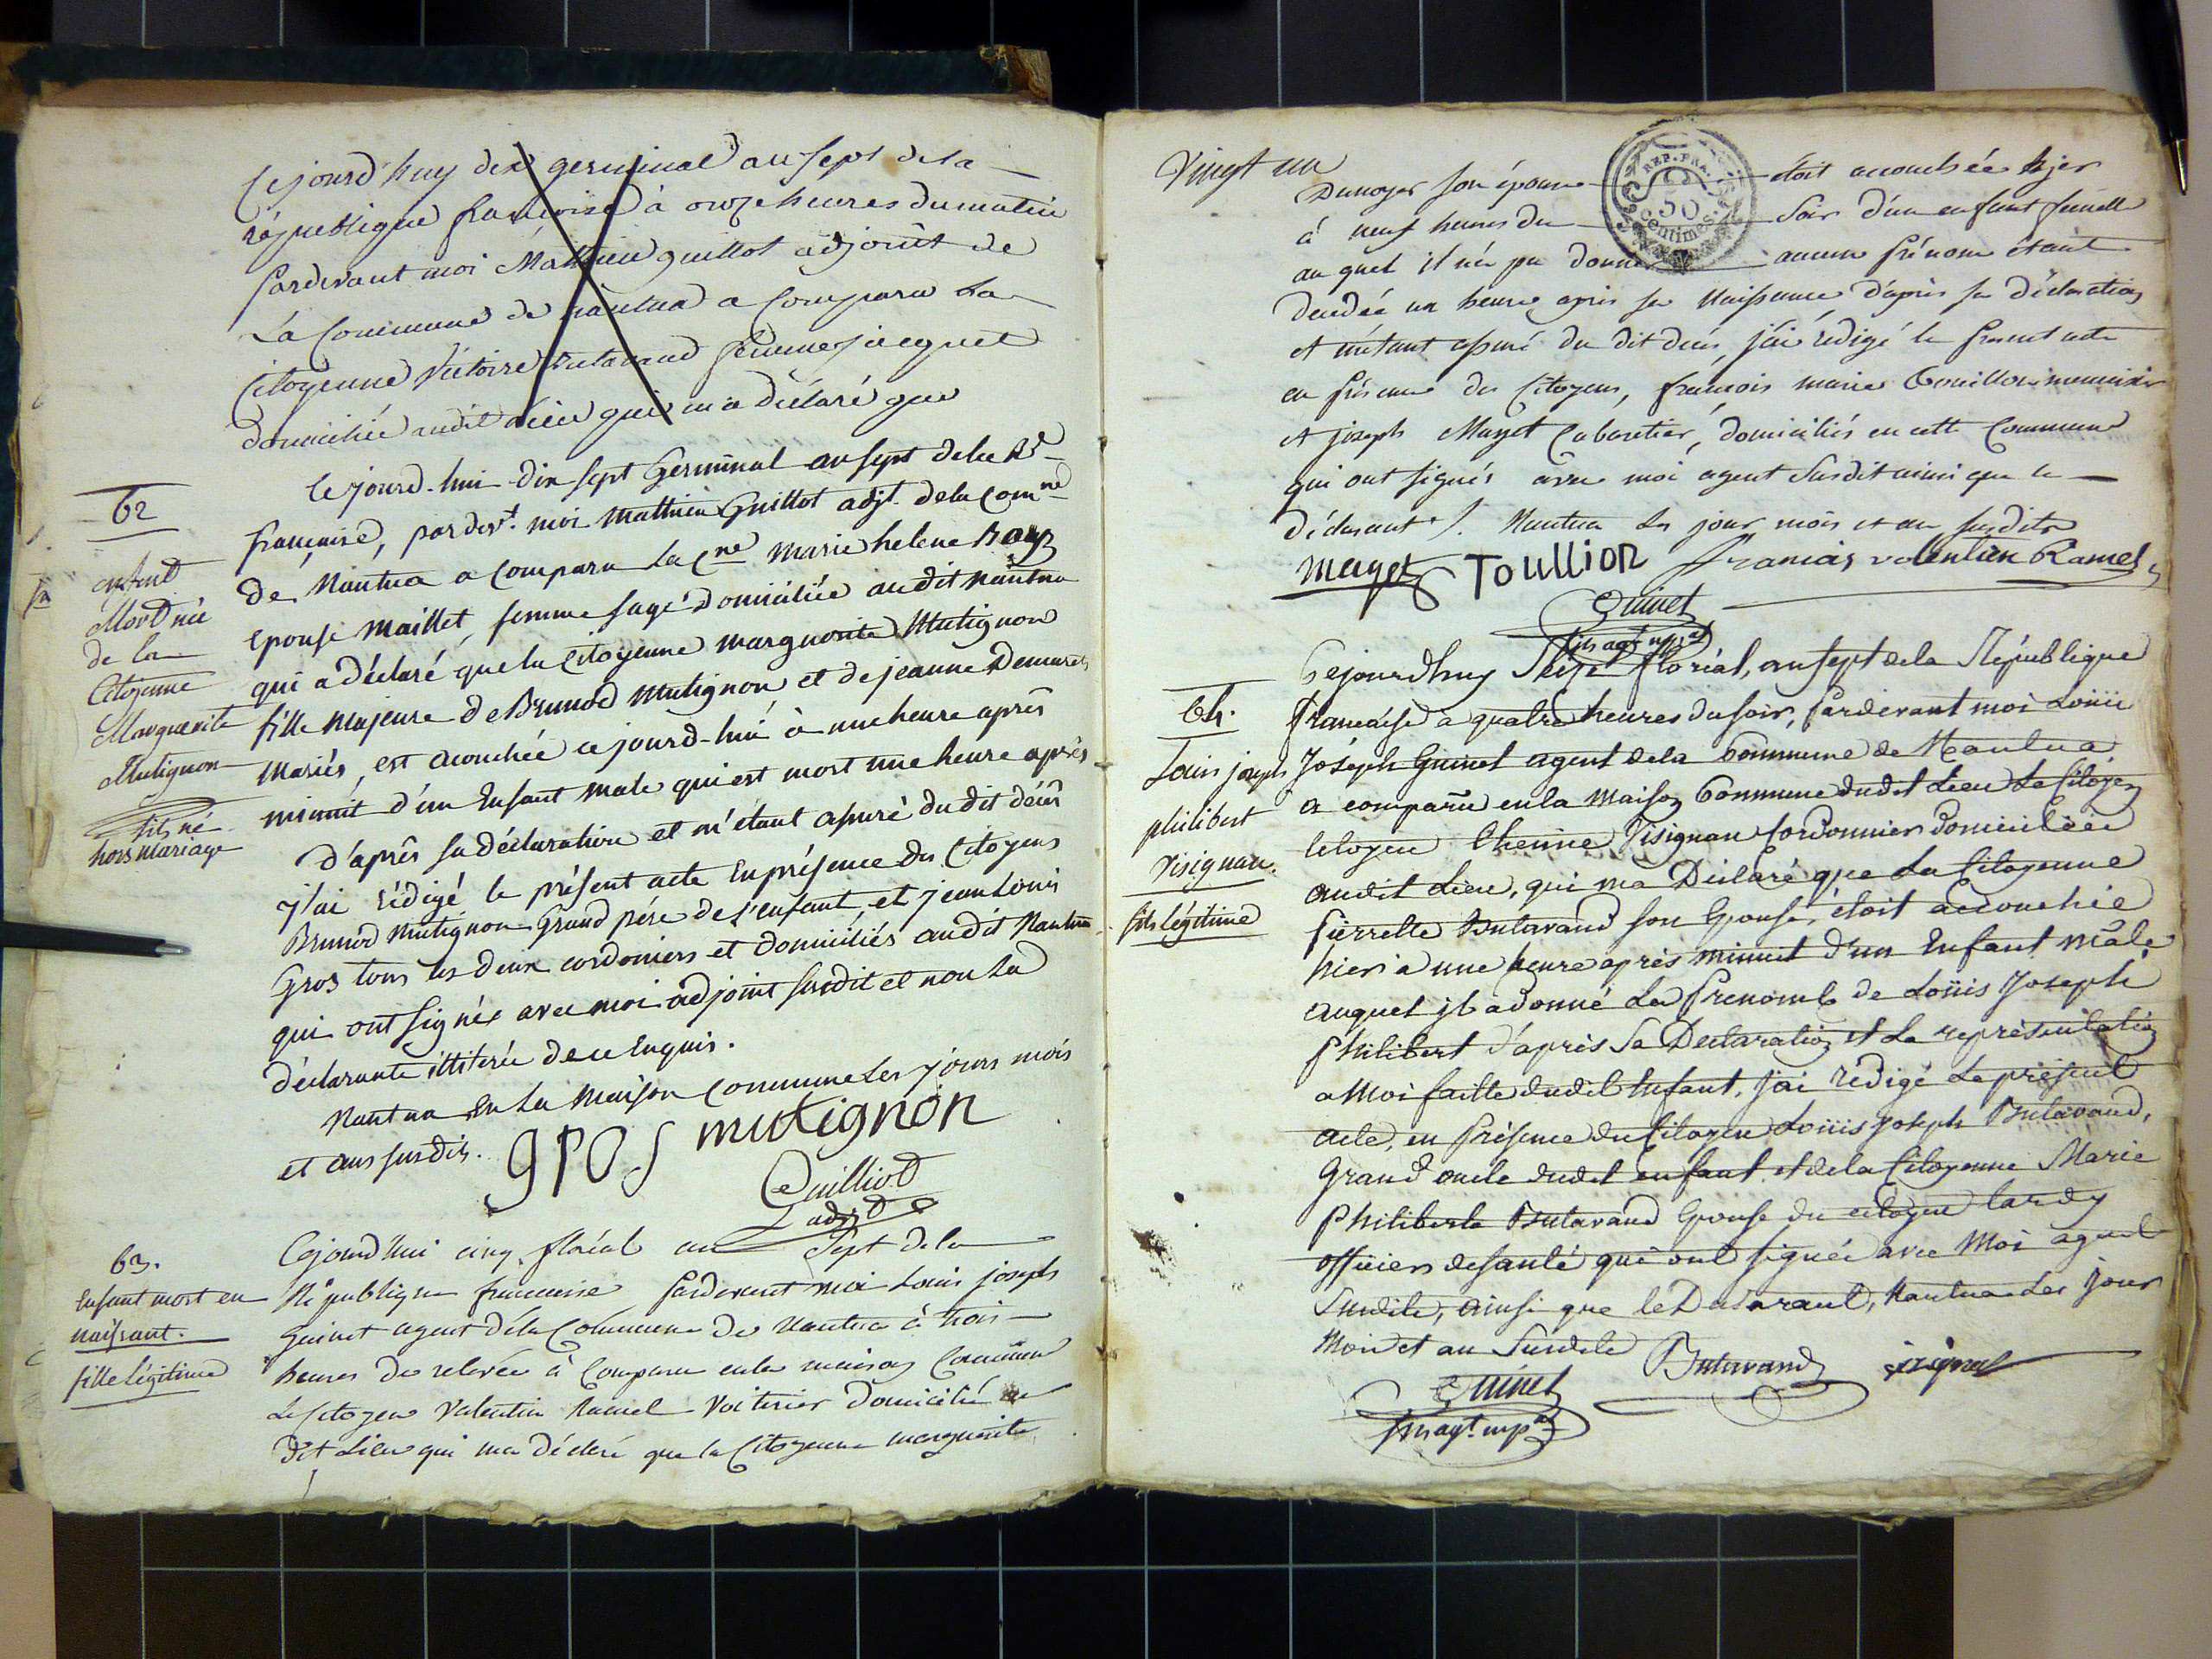 Cejourd'huy dix germinal an sept de la
république francoise à onze heures du matin
pardevant moi Mathieu guillot adjoint de
la Commune de nantua a Comparu la
Citoyenne Victoire Butavand femme jacquet
domiciliée audit lieu qui m'a déclaré que
62
enfant
Mort née
de la
Citoyenne
Marguerite
Mutignon
fils né
hors mariage
Cejourd-hui dix sept Germinal an sept de la
francaise, pardevt. moi Mathieu Guillot adjt. de la Comne
de Nantua a Comparu la Cne Marie helene
epouse Maillet, femme sage domiciliée audit nantua
qui a déclaré que la Citoyenne marguerite Mutignon
fille majeure de Brunod Mutignon et de jeanne
mariés, est acouchée cejourd-hui à une heure après
minuit d'un Enfant male qui est mort une heure après
d'après sa déclaration et m'étant assuré du dit décès
j'ai rédigé le présent acte En présence des Citoyens
Brunod Mutignon Grand père de l'enfant et jean Louis
Gros tous les deux cordoniers et domiciliés audit Nantua
qui ont signés avec moi adjoint susdit et non la
déclarante illiterée de ce Enquis.
Nantua En la Maison Commune Les jours mois
et ans susdits.
gros mutignon
Guilliot
adjt
63.
Enfant mort en
naissant.
fille légitime
Cejourd'hui cinq floréal an Sept de la
République francaise Pardevant moi Louis joseph
Guinet agent de la Commune de Nantua à trois
heures de relevée à Comparu en la maison Commune
Le Citoyen Valentin Ramel Voiturier Domicilié au
dit Lieu qui m'a déclaré que la Citoyenne marguerite
Vingt un
Dunoyer son épouse étoit acouchée hjer
à neuf heures du Soir d'un enfant femelle
au quel il n'a pu donner aucun prénom étant
décédée un heure après sa Naissance d'après sa déclaration
et m'étant assuré du dit décès, j'ai rédigé le présent acte
en présence des Citoyens, francois marie menuisier
et joseph Maget Cabaretier, domiciliés en cette Commune
qui ont signés avec moi agent Susdit ainsi que le
déclarant /. Nantua les jour mois et an susdits
Maget Toullion francois valentin Ramel
Guinet
agt mpal
REP. FRA.
50
Centimes.
64.
Louis joseph
philibert
Visignan.
fils légitime
Cejourdhuy Seize floréal, an sept de la République
francaise à quatre heures du soir, pardevant moi Louis
Joseph Guinet agent de la Commune de Nantua
a comparu en la Maison Commune dudit Lieu Le Citoyen
Citoyen Etienne Visignan Cordonnier domicilié
audit Lieu, qui m'a Déclaré que La Citoyenne
Pierrette Butavand son Epouse, étoit accouchée
hier à une heure après minuit d'un Enfant mâle
auquel jl a donné Les Prenoms de Loüis Joseph
Philibert d'après Sa Declaration et La représentation
a Moi faitte dudit Enfant, j'ai rédigé Le présent
acte, en présence du Citoyen Loüis Joseph Butavand,
Grand oncle dudit enfant et de la Citoyenne Marie
Philiberte Butavand Epouse du citoyen
officier de santé qui ont signés avec Moi agent
Susdite, ainsi que le Déclarant, Nantua Les Jour
Mois et an Susdits
Butavand
Guinet
agt. mpal